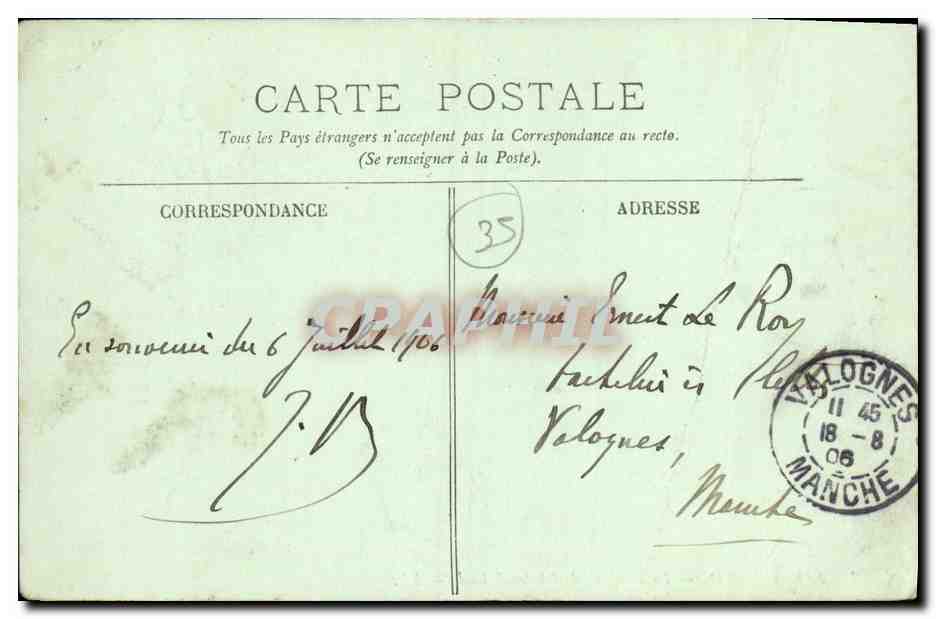 CARTE POSTALE
Tous les Pays étrangers n'acceptent pas la Correspondance au recto.
(Se renseigner à la Poste).
CORRESPONDANCE
ADRESSE
35
En souvenir du 6 Juillet 1906
J. B
Monsieur Ernest Le Roy
Bachelier ès
Valognes,
Manche
VALOGNES
11 45
18 - 8
06
MANCHE
CPAPHIL